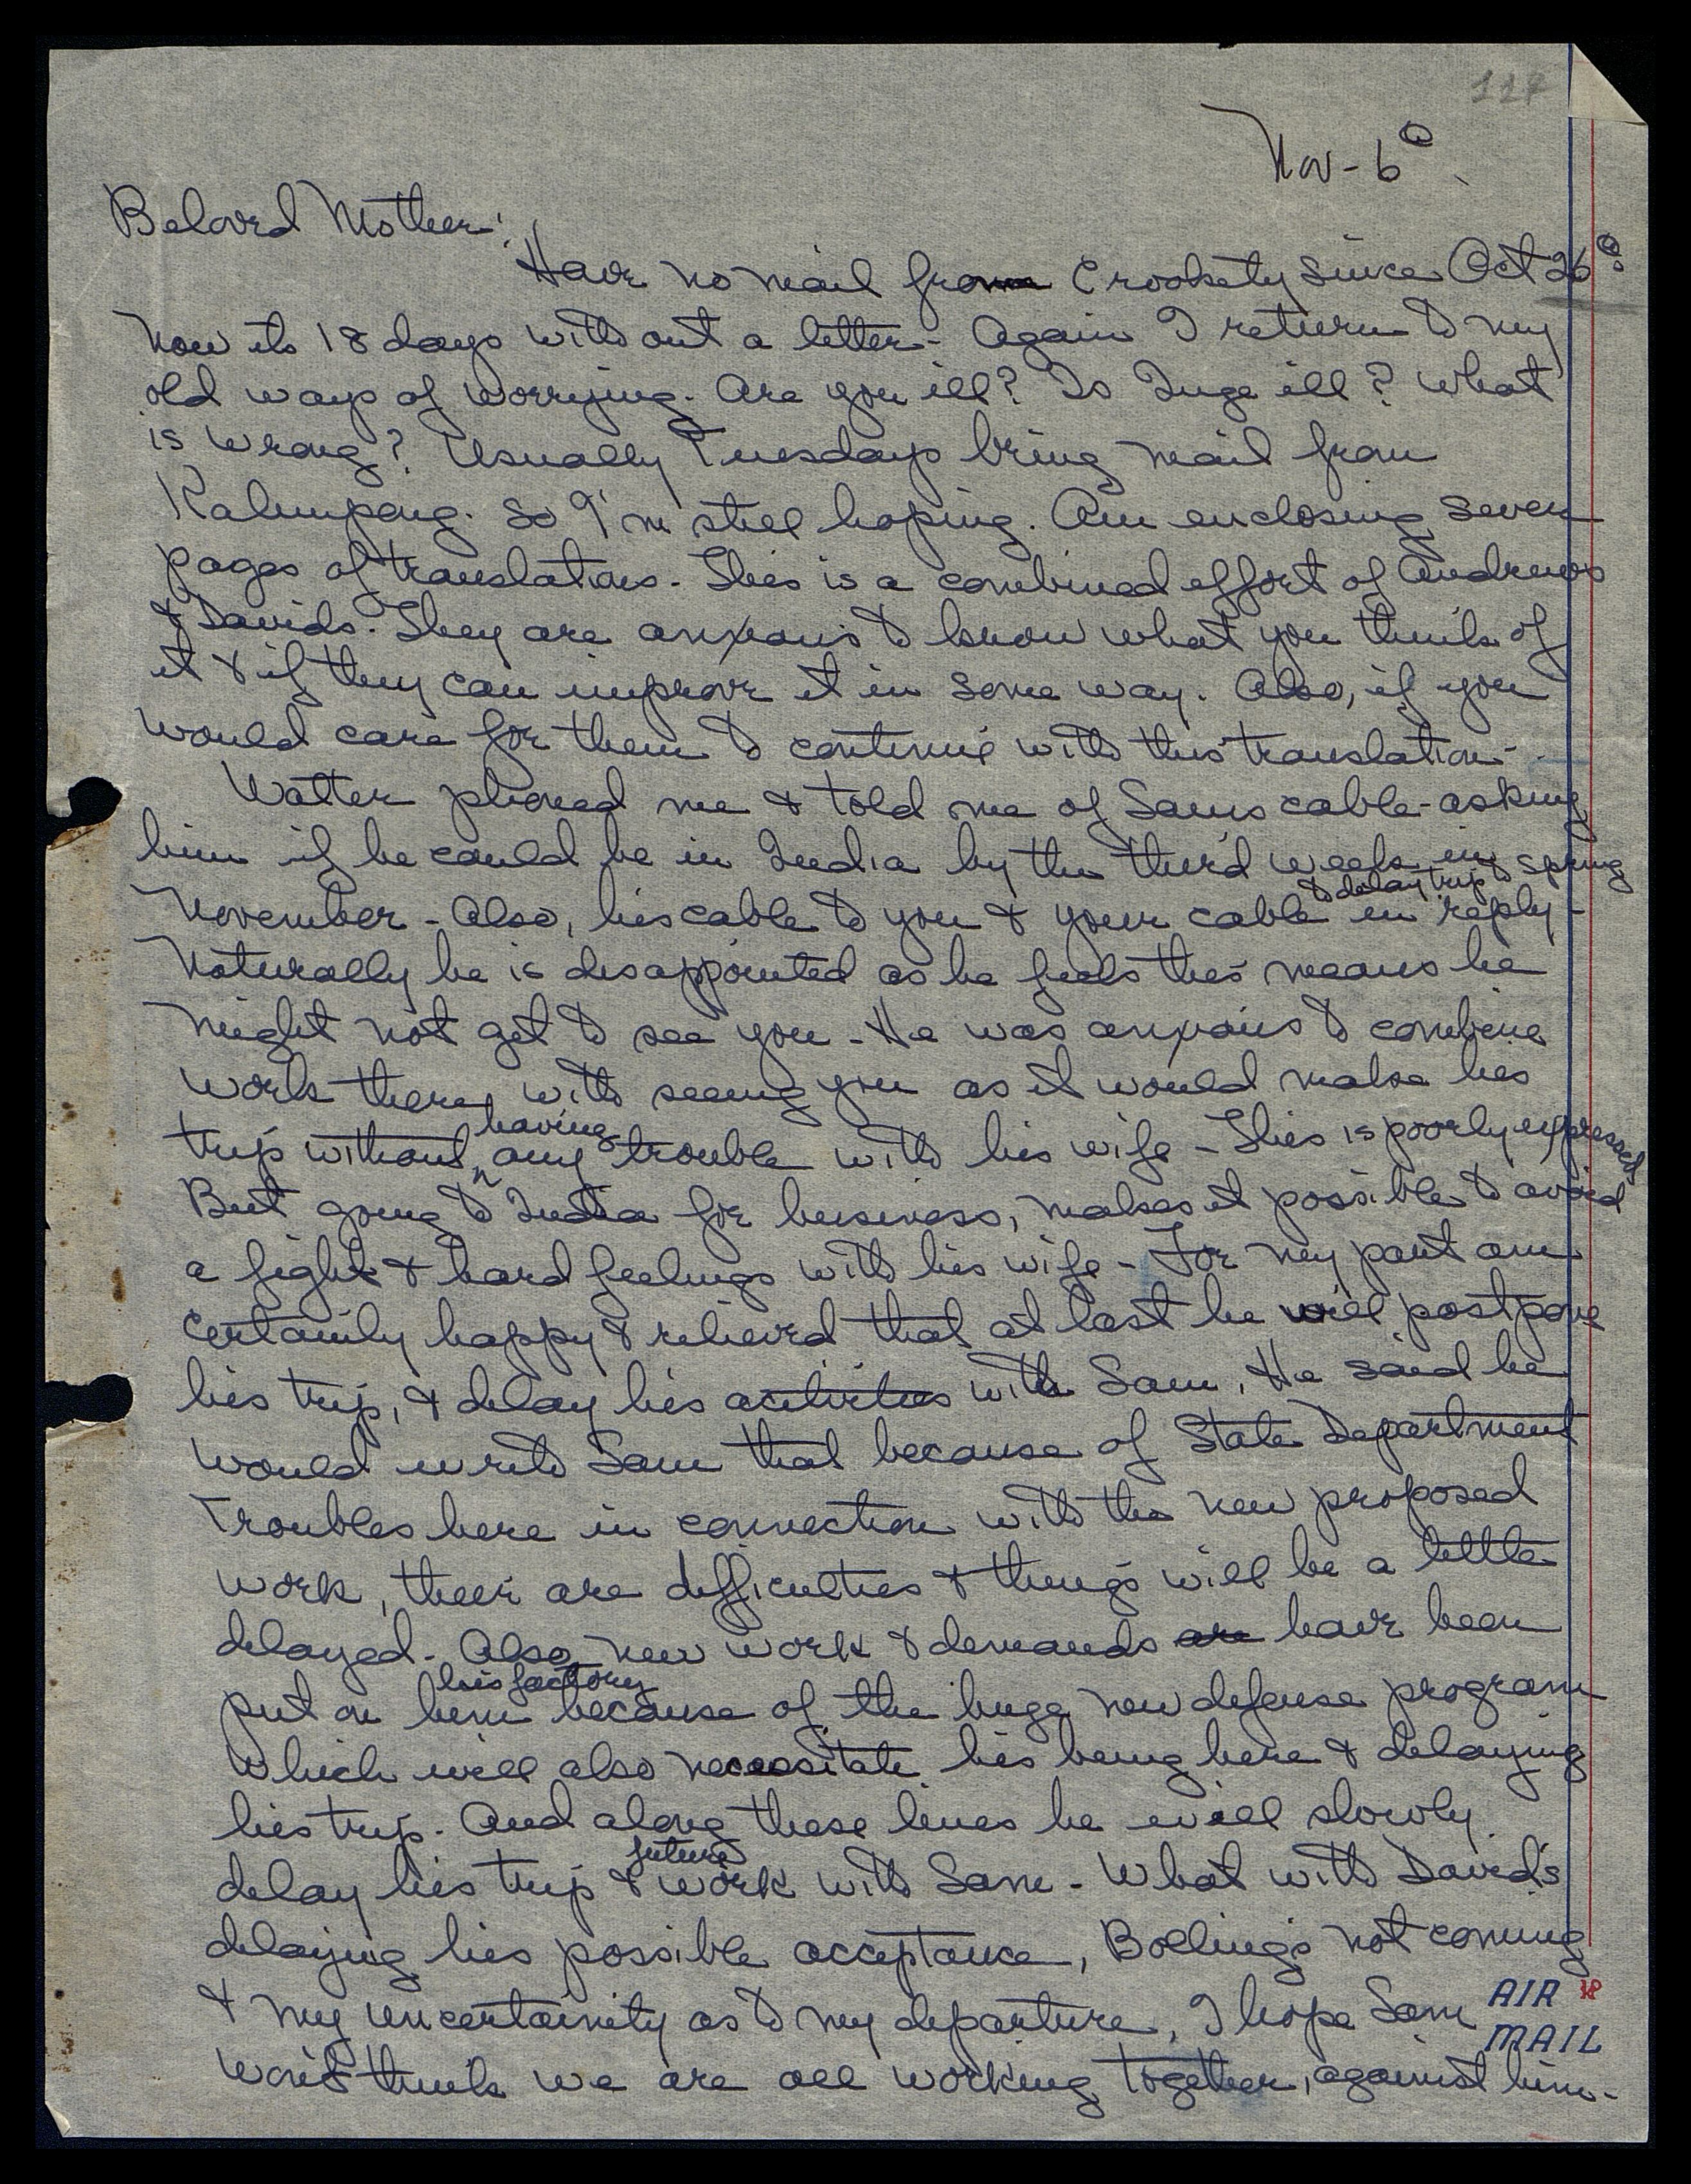 127
Nov - 6
Beloved Mother:
Have no mail from Crookety since Oct 26
Now its 18 days without a letter - Again I return to my
old ways of worrying. Are you ill? Is Inge ill? What
is wrong? Usually Tuesdays bring mail from
Kalimpong. So I'm still hoping. Am enclosing seven
pages of translations - This is a combined effort of Andrews
& Davids. They are anxious to know what you think of
it & if they can improve it in some way. Also, if you
would care for them to continue with this translation -
Walter phoned me & told me of Sams cable - asking
him if he could be in India by the third week in spring
to delay trip
November - Also, his cable to you & your cable in reply -
Naturally he is disappointed as he feels this means he
might not get to see you - He was anxious to combine
work there with seeing you as it would make his
having
trip without any trouble with his wife - This is poorly expressed
But going to India for business, makes it possible to avoid
a fight & hard feelings with his wife - For my part am
certainly happy & relieved that at last he will postpone
his trip, & delay his activities with Sam. He said he
would write Sam that because of State Department
troubles here in connection with the new proposed
work, their are difficulties & things will be a little
delayed - Also, new work & demands are have been
his factory
put on him because of the huge new defense program
which will also necessitate his being here & delaying
his trip. And along these lines he will slowly
future
delay his trip & work with Sam - What with David's
delaying his possible acceptance, Bollings not coming
& my uncertainity as to my departure, I hope Sam
wont think we are all working together, against him -
AIR
MAIL